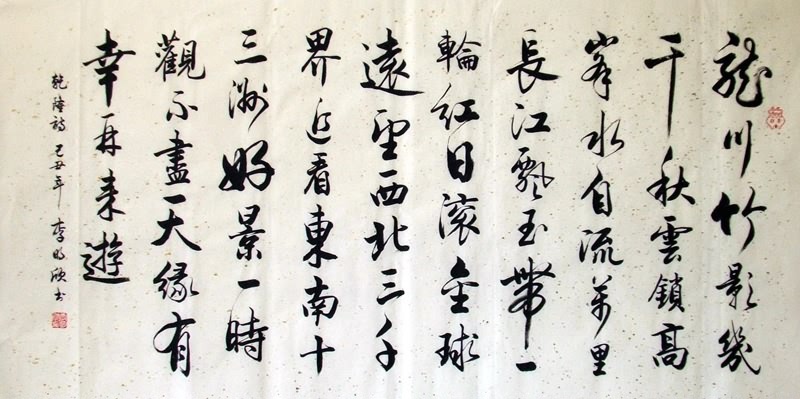 龍川竹影幾
千秋雲鎖高
峯水自流萬里
長江飄玉帶一
輪紅日滾金球
遠望西北三千
界近看東南十
三洲好景一時
觀不盡天緣有
幸再來遊
乾隆詩 己丑年 李明欣書